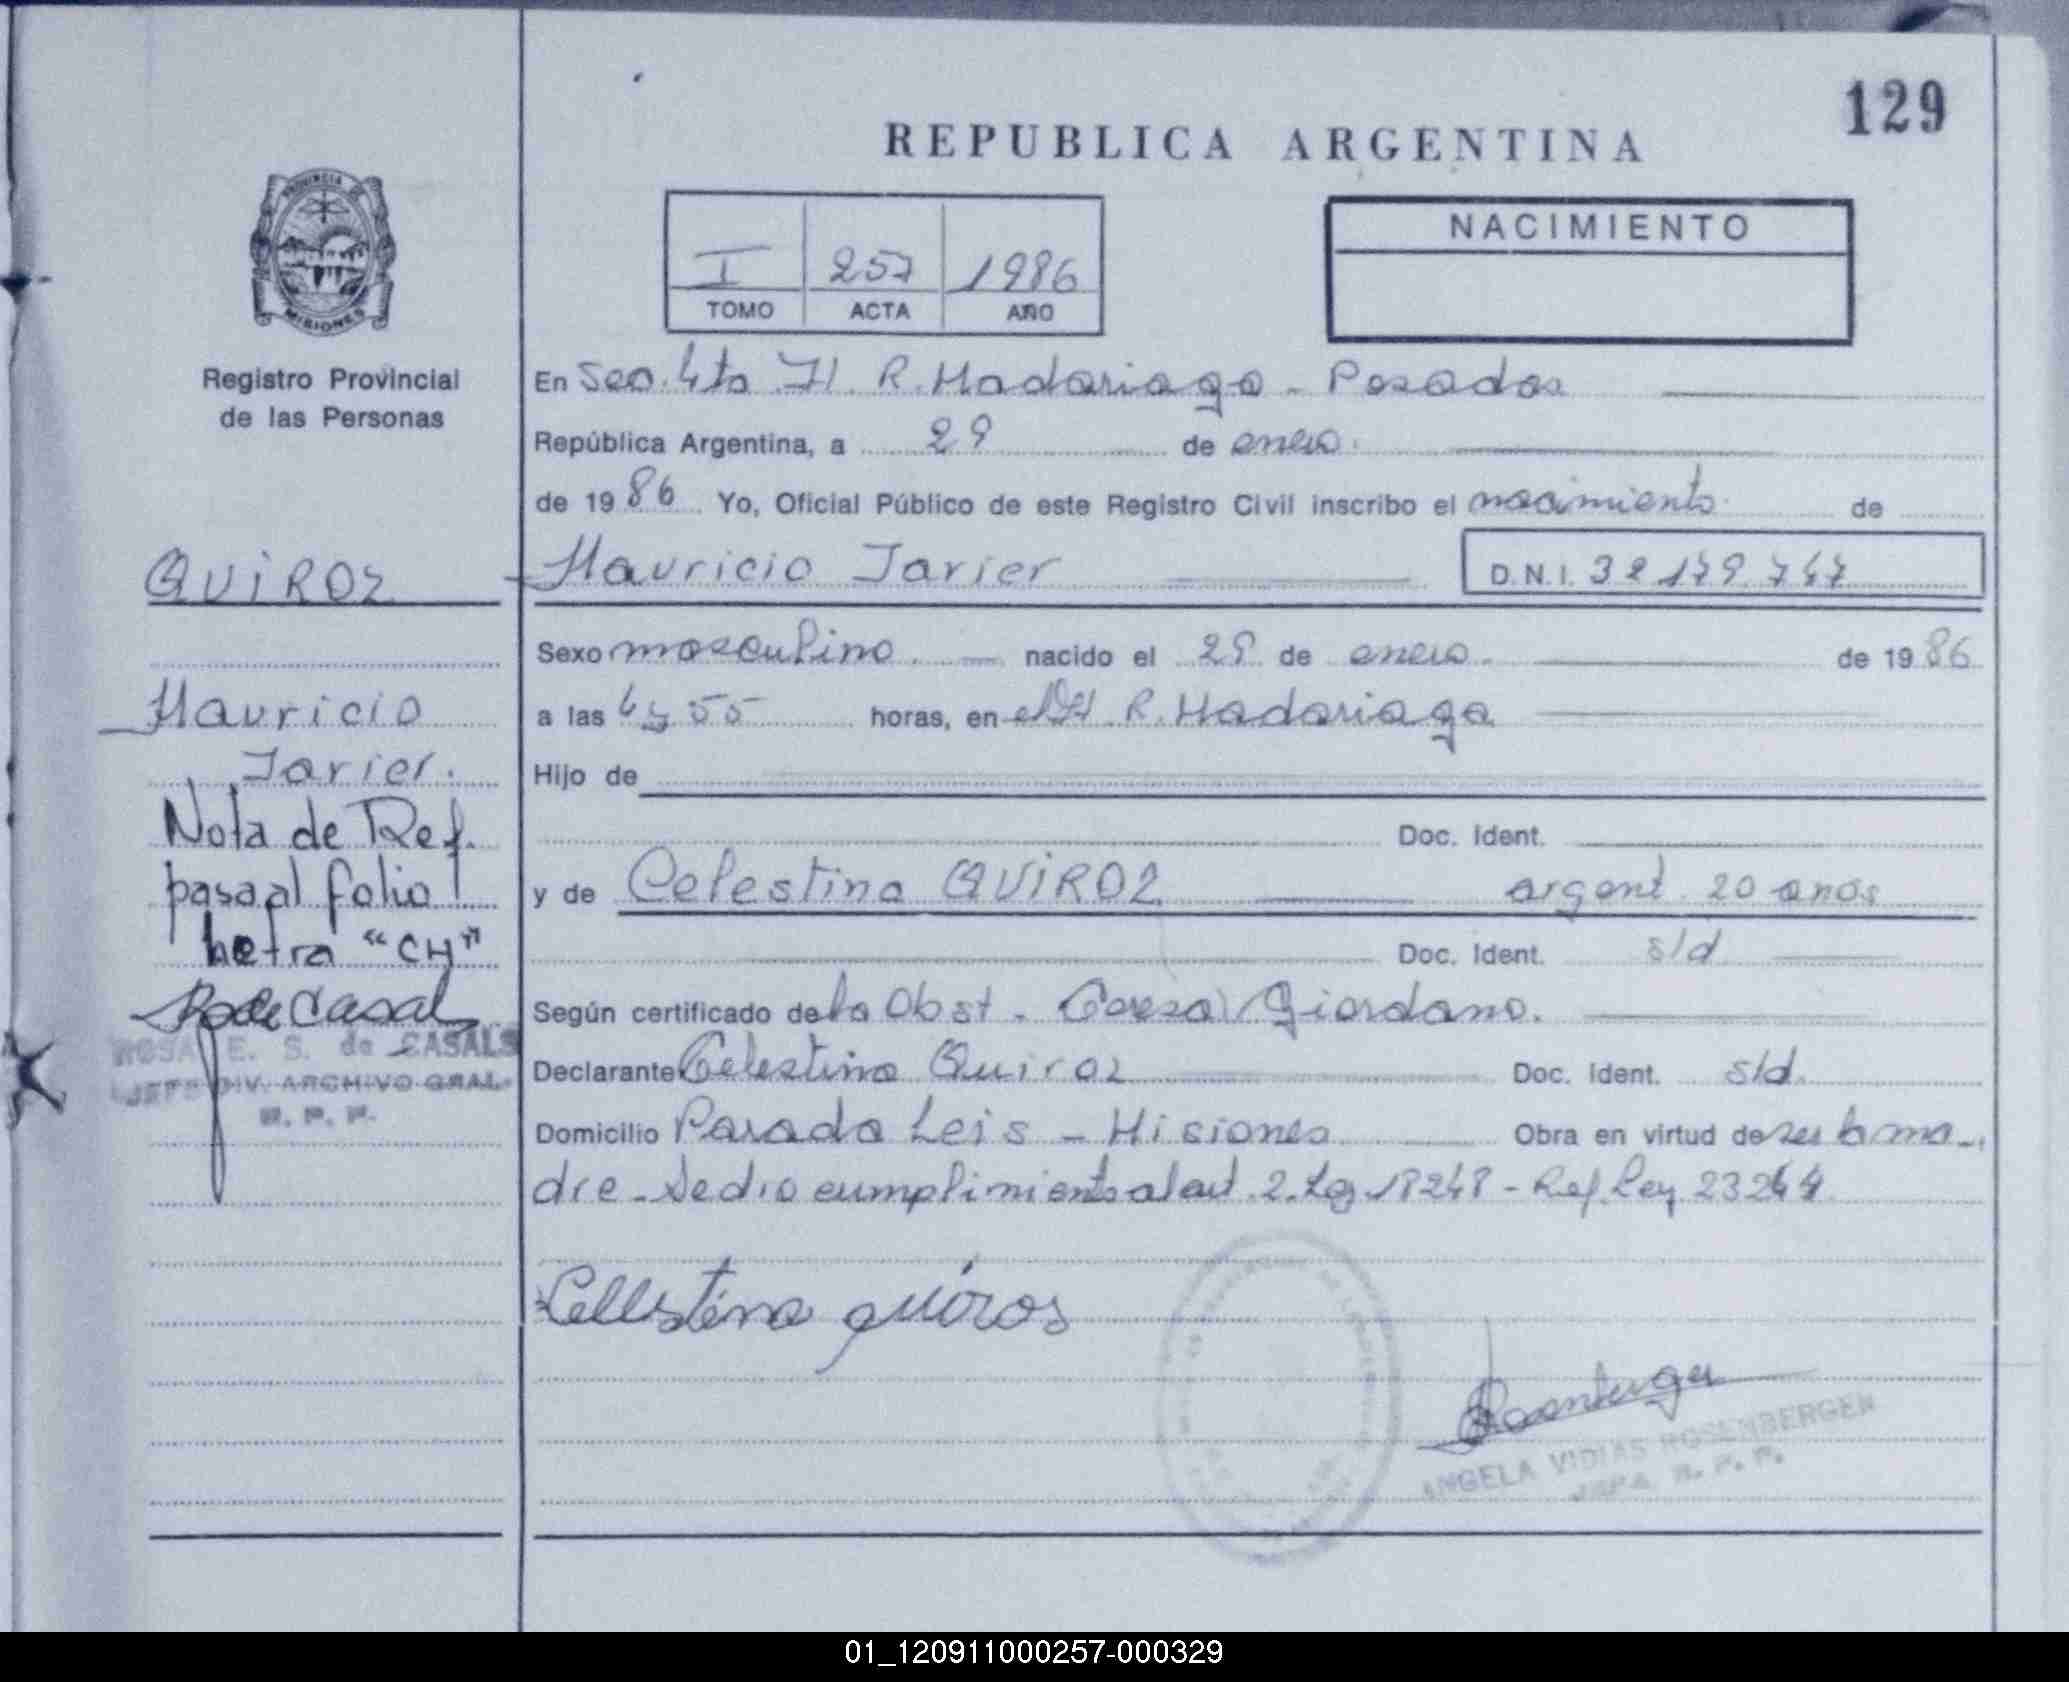 129
REPUBLICA ARGENTINA
PROVINCIA DE
MISIONES
Registro Provincial
de las Personas
I 257 1986
TOMO ACTA AÑO
NACIMIENTO
En Sec. 4ta H. R. Madariaga - Posadas
República Argentina, a 29 de enero.
de 1986 Yo, Oficial Público de este Registro Civil inscribo el nacimiento de
QUiROZ
Mauricio Javier D.N.I. 32 179 747
Sexo masculino. nacido el 29 de enero. de 1986
Mauricio
a las 4 y 55 horas, en el H R. Madariaga
Javier.
Hijo de
Nota de Ref.
Doc. Ident.
pasa al folio 1
y de Celestina QUiROZ argent. 20 años
Letra "CH"
Doc. Ident. s/d
Según certificado de la Obst. Teresa Giordano.
ROSA E. S. de CASALS
JEFE DIV. ARCHIVO GRAL.
R. P. P.
Declarante Celestina Quiroz Doc. Ident. s/d.
Domicilio Parada Leis - Misiones Obra en virtud de ser la ma-
dre - Se dio cumplimiento al art. 2. Ley 18248 - Ref. Ley 23264
Cellestina quiros
ANGELA VIDIAS ROSENBERGER
JEFA R. P. P.
01_120911000257-000329